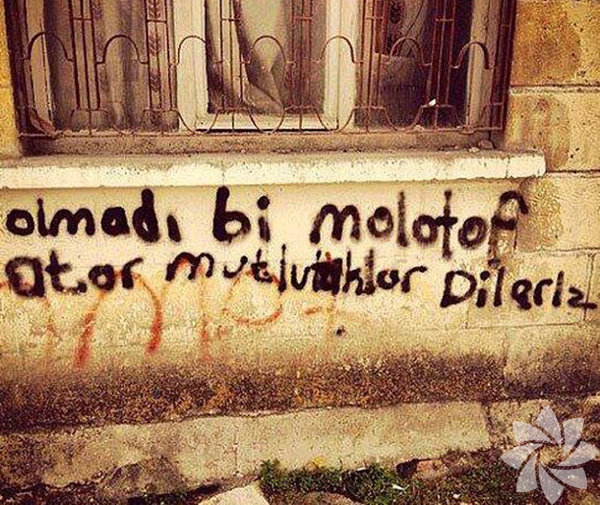 olmadı bi molotof
atar mutluluklar Dileriz